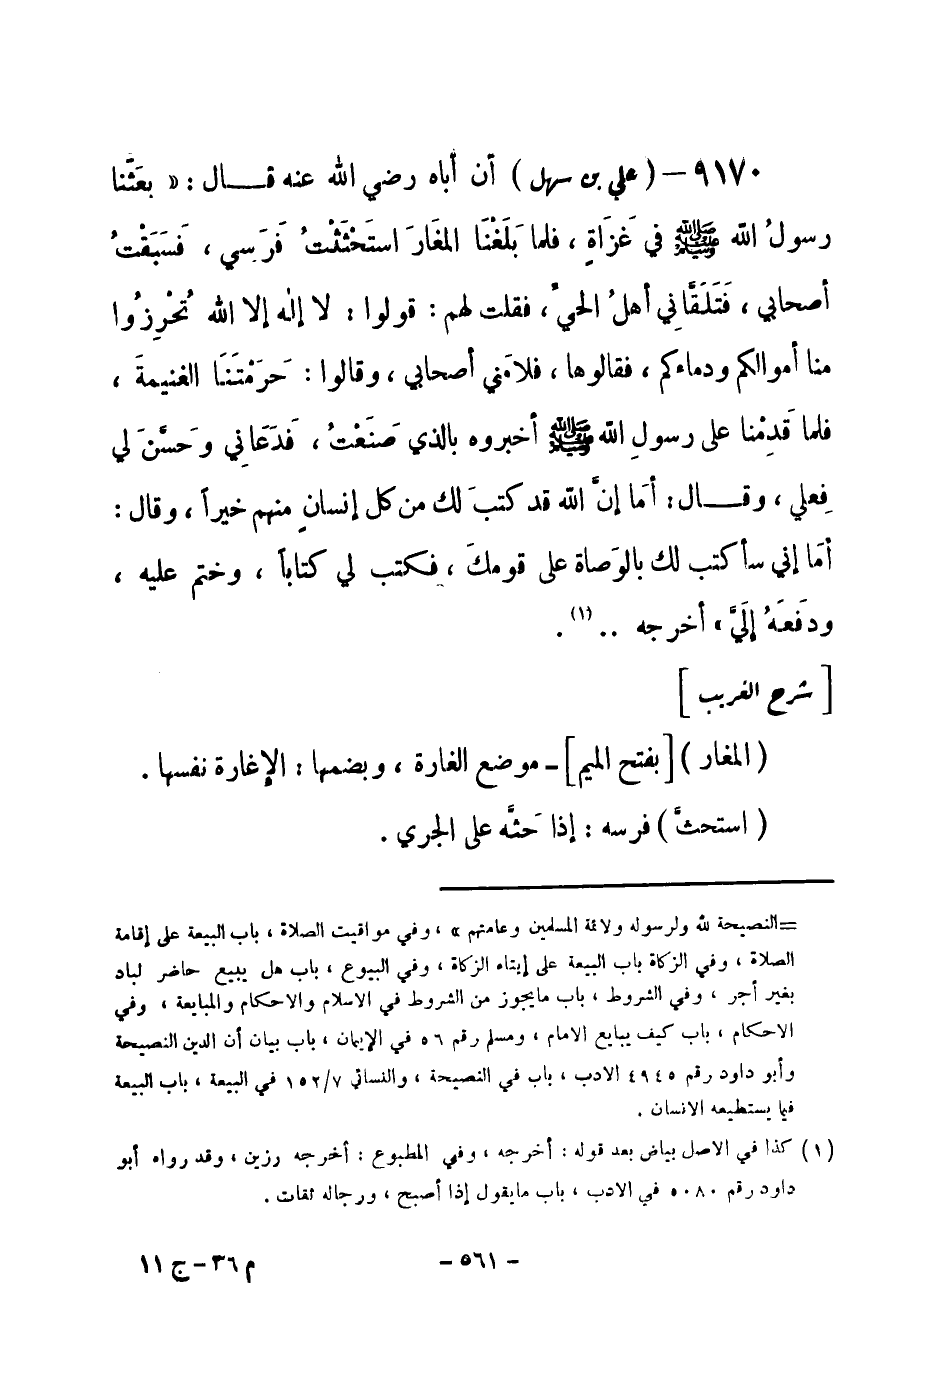 ٩١٧٠ – ( علي بن سهل ) أن أباه رضي الله عنه قــال : « بعَثَّنا
رسولُ الله ﷺ في غَزَاةٍ ، فلما بَلَغْنَا المغَارَ استَحْثَثْتُ فَرَسي ، فَسَبَقْتُ
أصحابي ، فَتَلَقَّاني أهلُ الحيِّ ، فقلت لهم : قولوا : لا إله إلا الله تُحْرِزُوا
منا أموالكم ودماءكم ، فقالوها ، فلامَني أصحابي ، وقالوا : حَرَمْتَنَا الغنيمةَ ،
فلما قَدِمْنا على رسولِ الله ﷺ أخبروه بالذي صَنَعْتُ ، فَدَعَاني وحَسَّنَ لي
فِعلي ، وقــال : أمَا إنَّ الله قد كتبَ لك من كل إنسانٍ منهم خيراً ، وقال :
أمَا إني سأكتب لك بالوَصاة على قومكَ ، فكتب لي كتاباً ، وختم عليه ،
ودَفَعَهُ إِلَيَّ » أخرجه .. (١) .
[ شرح الغريب ]
( المغار ) [بفتح الميم] – موضع الغارة ، وبضمها : الإغارة نفسها .
( استحثَّ ) فرسه : إذا حَثَّه على الجري .
=النصيحة لله ولرسوله ولائمة المسلمين وعامتهم » ، وفي مواقيت الصلاة ، باب البيعة على إقامة
الصلاة ، وفي الزكاة باب البيعة على إيتاء الزكاة ، وفي البيوع ، باب هل يبيع حاضر لباد
بغير أجر ، وفي الشروط ، باب مايجوز من الشروط في الاسلام والاحكام والمبايعة ، وفي
الاحكام ، باب كيف يبايع الامام ، ومسلم رقم ٥٦ في الإيمان ، باب بيان أن الدين النصيحة
وأبو داود رقم ٤٩٤٥ الادب ، باب في النصيحة ، والنسائي ١٥٢/٧ في البيعة ، باب البيعة
فيما يستطيعه الانسان .
(١) كذا في الاصل بياض بعد قوله : أخرجه ، وفي المطبوع : أخرجه رزين ، وقد رواه أبو
داود رقم ٥٠٨٠ في الادب ، باب مايقول إذا أصبح ، ورجاله ثقات .
– ٥٦١ –
م ٣٦ – ج ١١